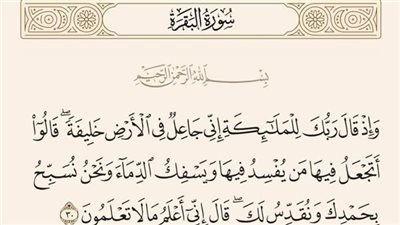 سُورَةُ البَقَرَةِ
بِسْمِ اللَّهِ الرَّحْمَٰنِ الرَّحِيمِ
وَإِذْ قَالَ رَبُّكَ لِلْمَلَٰٓئِكَةِ إِنِّى جَاعِلٌ فِى ٱلْأَرْضِ خَلِيفَةً ۖ قَالُوٓا۟
أَتَجْعَلُ فِيهَا مَن يُفْسِدُ فِيهَا وَيَسْفِكُ ٱلدِّمَآءَ وَنَحْنُ نُسَبِّحُ
بِحَمْدِكَ وَنُقَدِّسُ لَكَ ۖ قَالَ إِنِّىٓ أَعْلَمُ مَا لَا تَعْلَمُونَ ٣٠